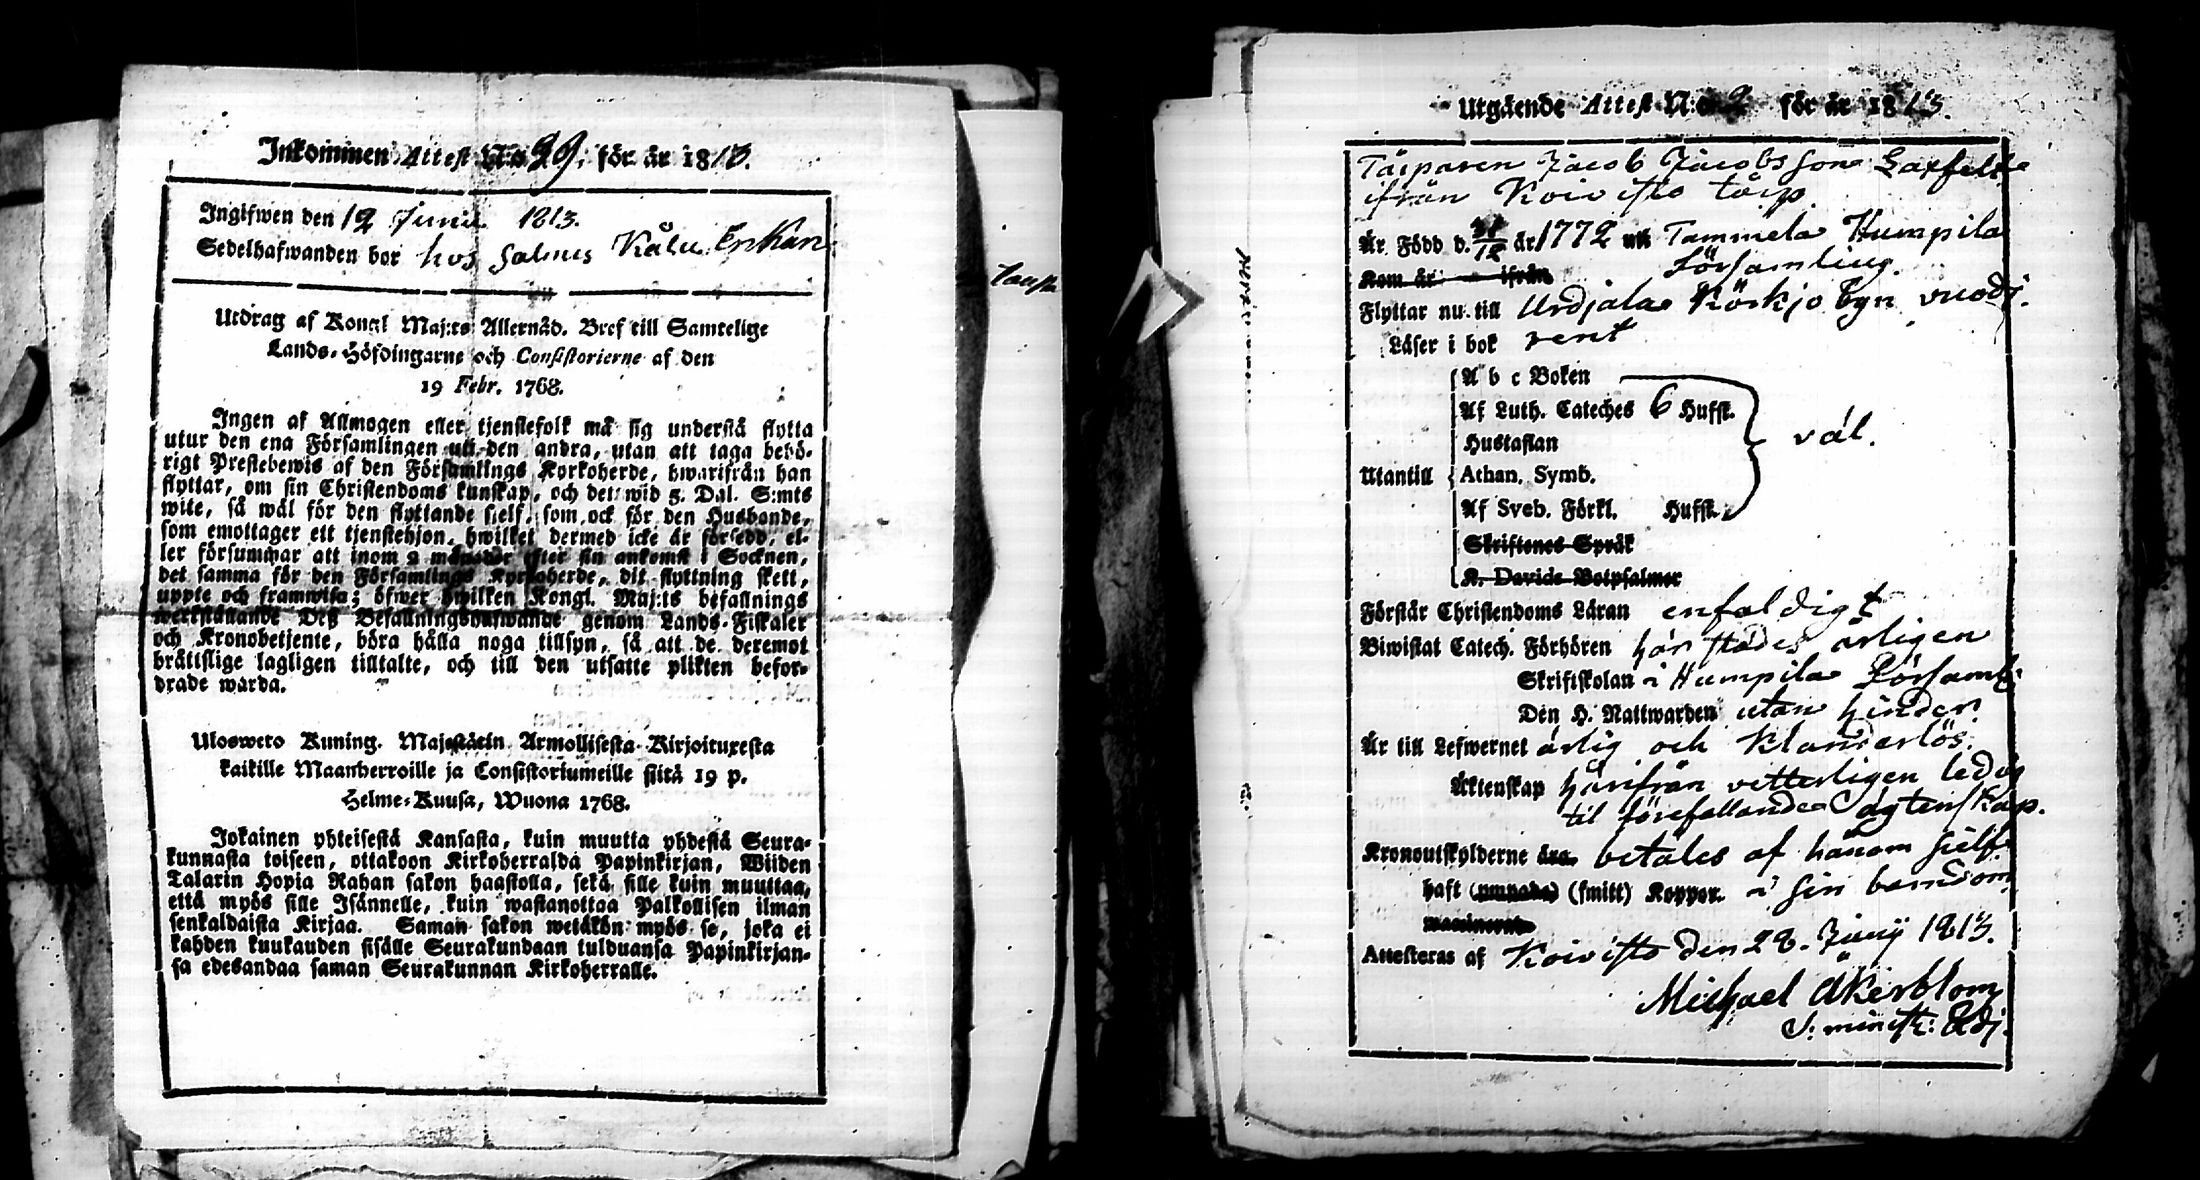 Inkommen Attest No 29. för år 1813.
Ingifwen den 12 Junii 1813.
Sedelhafwanden bor hos Salmis Kålu Enkan
Utdrag af Kongl Maj:ts Allernåd. Bref till Samtelige
Lands-Höfdingarne och Consistorierne af den
19 Febr. 1768.
Ingen af Allmogen eller tjenstefolk må sig understå flytta
utur den ena Församlingen uti den andra, utan att taga behö-
rigt Prestebewis af den Församlings Kyrkoherde, hwarifrån han
flyttar, om sin Christendoms kunskap, och det wid 5. Dal. S:mts
wite, så wäl för den flyttande sjelf, som ock för den Husbonde,
som emottager ett tjenstehjon, hwilket dermed icke är försedd, el-
ler försummar att inom 2 månader efter sin ankomst i Socknen,
det samma för den Församlings Kyrkoherde, dit flyttning skett,
uppte och framwisa; öfwer hwilken Kongl. Maj:ts befallnings
werkställande Deß Befallningshafwande genom Lands-Fiskaler
och Kronobetjente, böra hålla noga tillsyn, så att de deremot
bråttslige lagligen tilltalte, och till den utsatte plikten befor-
drade warda.
Ulosweto Kuning. Majestätin Armollisesta Kirjoituxesta
kaikille Maanherroille ja Consistoriumeille siitä 19 p.
Helme-Kuusa, Wuona 1768.
Jokainen yhteisestä Kansasta, kuin muutta yhdestä Seura-
kunnasta toiseen, ottakoon Kirkoherralda Papinkirjan, Wiiden
Talarin Hopia Rahan sakon haastolla, sekä sille kuin muuttaa,
että myös sille Isännelle, kuin wastanottaa Palkollisen ilman
senkaldaista Kirjaa. Saman sakon wetäkön myös se, joka ei
kahden kuukauden sisälle Seurakundaan tulduansa Papinkirjan-
sa edesandaa saman Seurakunnan Kirkoherralle.
Utgående Attest N:o 2 för år 1813.
Torparen Jacob Jacobsson Laxfelt
ifrån Koivisto torp
Är Född d. 31/12 år 1772 uti Tammela Humpila
Församling.
Kom år ifrån
Flyttar nu till Urdjala Körkjo byn
Läser i bok rent
A b c Boken
Af Luth. Cateches 6 Hufst.
Hustaflan
väl.
Utantill Athan. Symb.
Af Sveb. Förkl. Hufst.
Skriftenes Språk
K. Davids Botpsalmer
Förstår Christendoms Läran enfaldigt
Biwistat Catech. Förhören här städes årligen
Skriftskolan i Humpila Församl:
Den H. Nattwarden utan hinder.
Är till Lefwernet ärlig och klanderlös.
Äktenskap härifrån vetterligen ledig
til förefallande Ägtenskap.
Kronoutskylderne äro betales af honom sielf
haft (ympade) (smitt) Koppor. i sin barndom
vaccinerad
Attesteras af Koivisto den 28. Junij 1813.
Michael Åkerblom
S: minist: Adj.